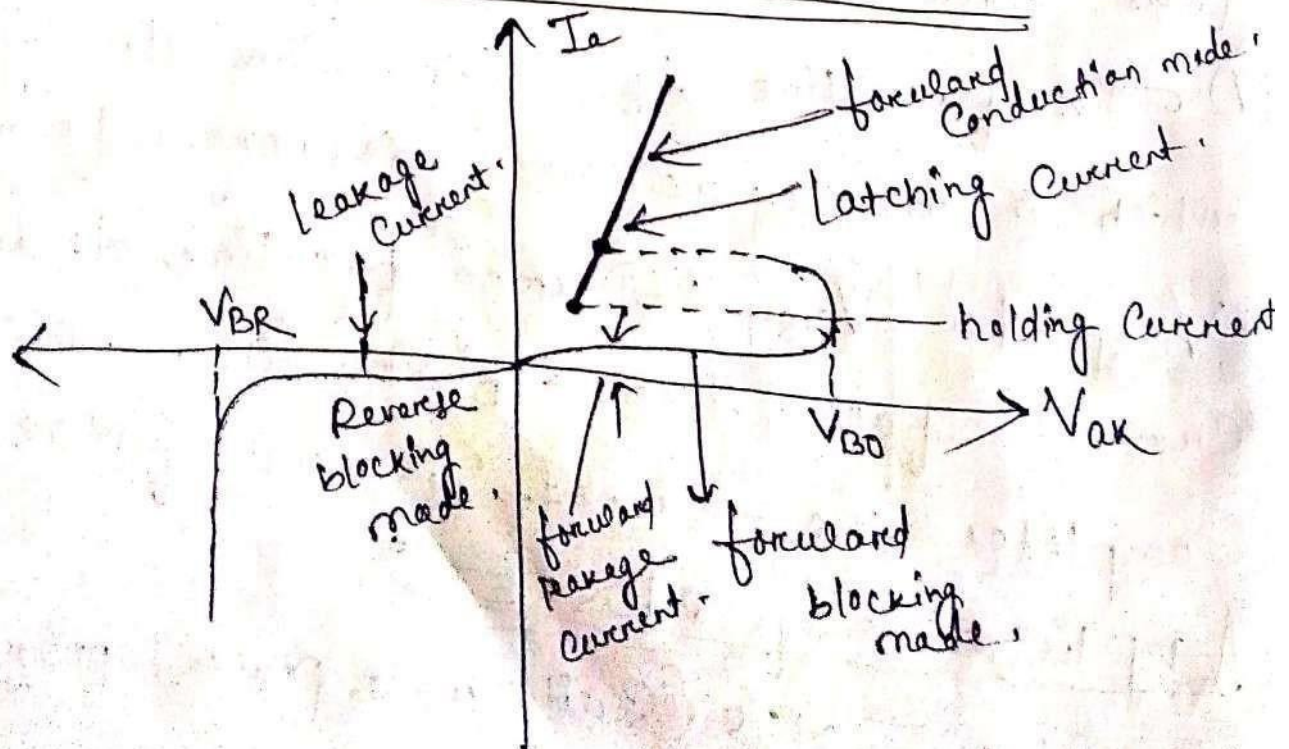 Ia
forward
Conduction mode.
Latching Current.
leakage
Current.
VBR
holding Current
Reverse
blocking
made.
VBO
Vak
forward
leakage
Current.
forward
blocking
made.